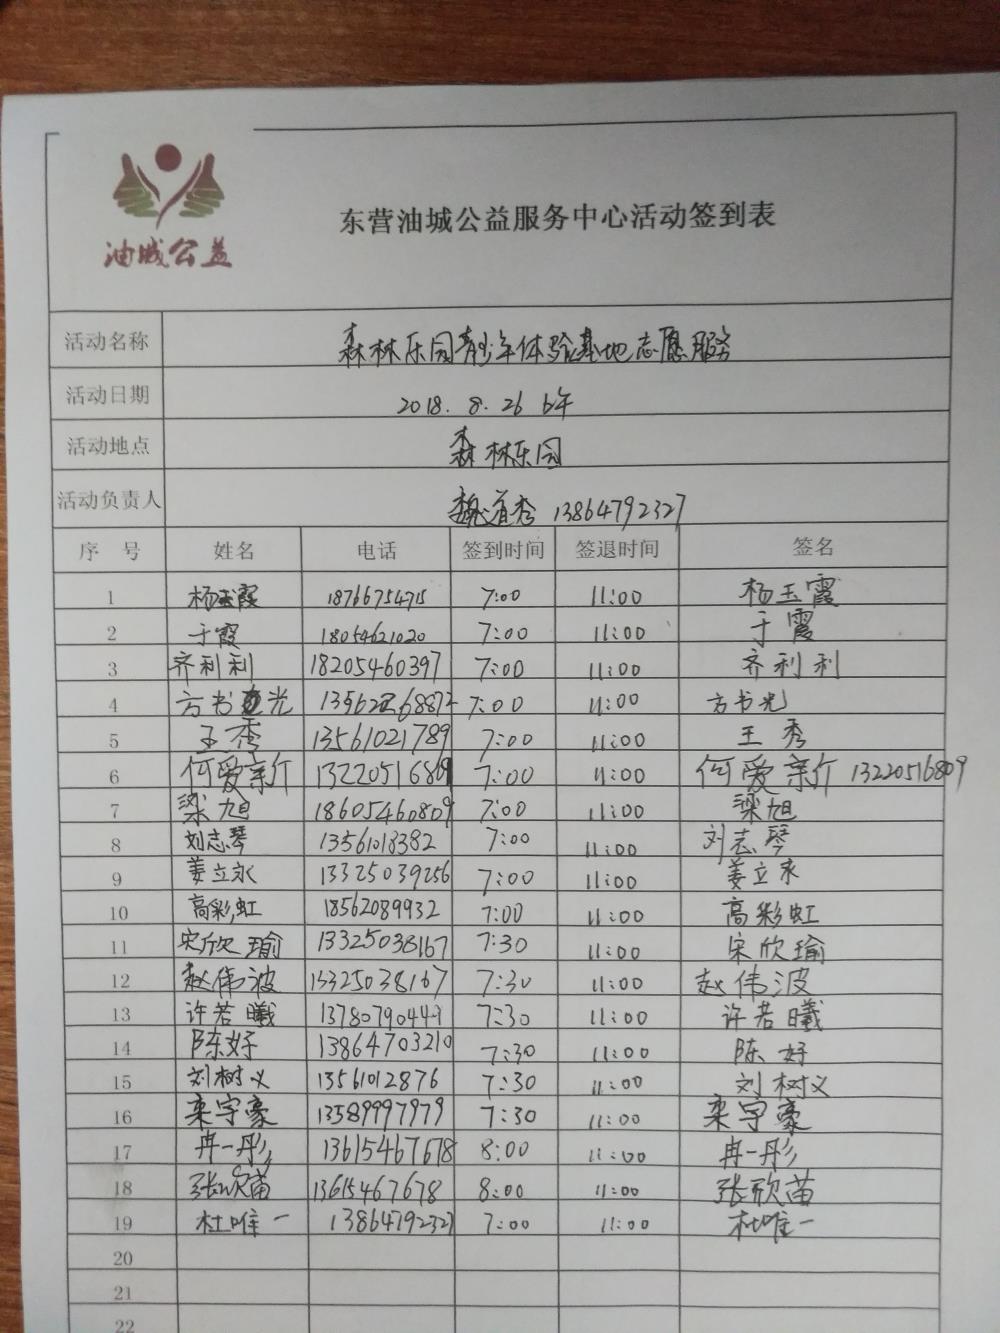 油城公益
东营油城公益服务中心活动签到表
活动名称 森林乐园青少年体验基地志愿服务
活动日期 2018.8.26
活动地点 森林乐园
活动负责人 魏道秀 13864792327
序号 姓名 电话 签到时间 签退时间 签名
1 杨玉霞 18766754715 7:00 11:00 杨玉霞
2 于霞 18054621020 7:00 11:00 于霞
3 齐利利 18205460397 7:00 11:00 齐利利
4 方书光 7:00 11:00 方书光
5 王秀 13561021789 7:00 11:00 王秀
6 何爱亲 7:00 11:00 何爱亲
7 梁旭 18605460809 7:00 11:00 梁旭
8 刘志琴 13561018382 7:00 11:00 刘志琴
9 姜立永 13325039256 7:00 11:00 姜立永
10 高彩虹 18562089932 7:00 11:00 高彩虹
11 宋欣瑜 13325038167 7:30 11:00 宋欣瑜
12 赵伟波 13325038167 7:30 11:00 赵伟波
13 许若曦 7:30 11:00 许若曦
14 陈好 13864703210 7:30 11:00 陈好
15 刘树义 13561012876 7:30 11:00 刘树义
16 栾宇豪 13589997979 7:30 11:00 栾宇豪
17 冉一彤 13615467678 8:00 11:00 冉一彤
18 张欣苗 13615467678 8:00 11:00 张欣苗
19 杜唯一 13864792327 7:00 11:00 杜唯一
20
21
22